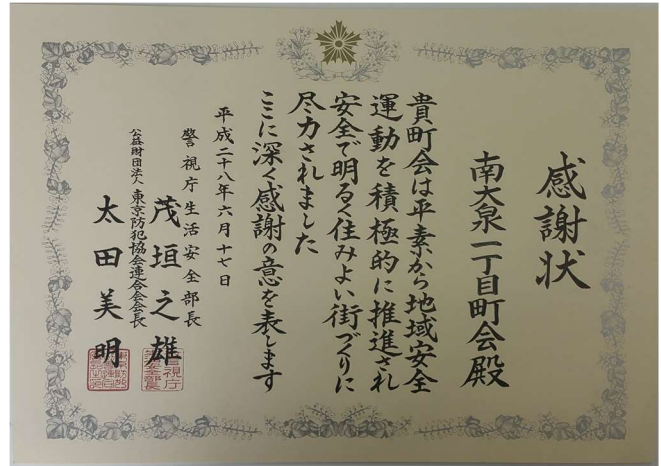 感謝状
南大泉一丁目町会殿
貴町会は平素から地域安全
運動を積極的に推進され
安全で明るく住みよい街づくりに
尽力されました
ここに深く感謝の意を表します
平成二十八年六月十七日
警視庁生活安全部長
茂垣之雄
公益財団法人東京防犯協会連合会会長
太田美明